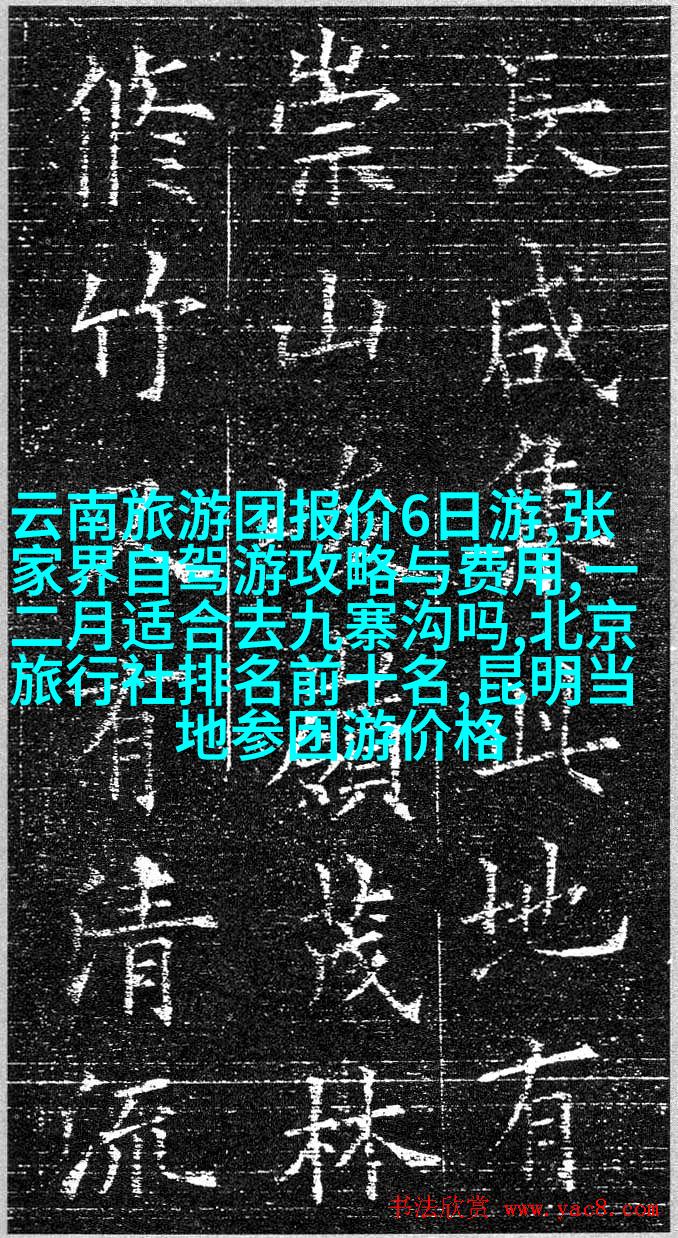 長咸集此地有
崇山峻嶺茂林
修竹又有清流
云南旅游团报价6日游,张
家界自驾游攻略与费用,一
二月适合去九寨沟吗,北京
旅行社排名前十名,昆明当
地参团游价格
书法欣赏 www.yac8.com